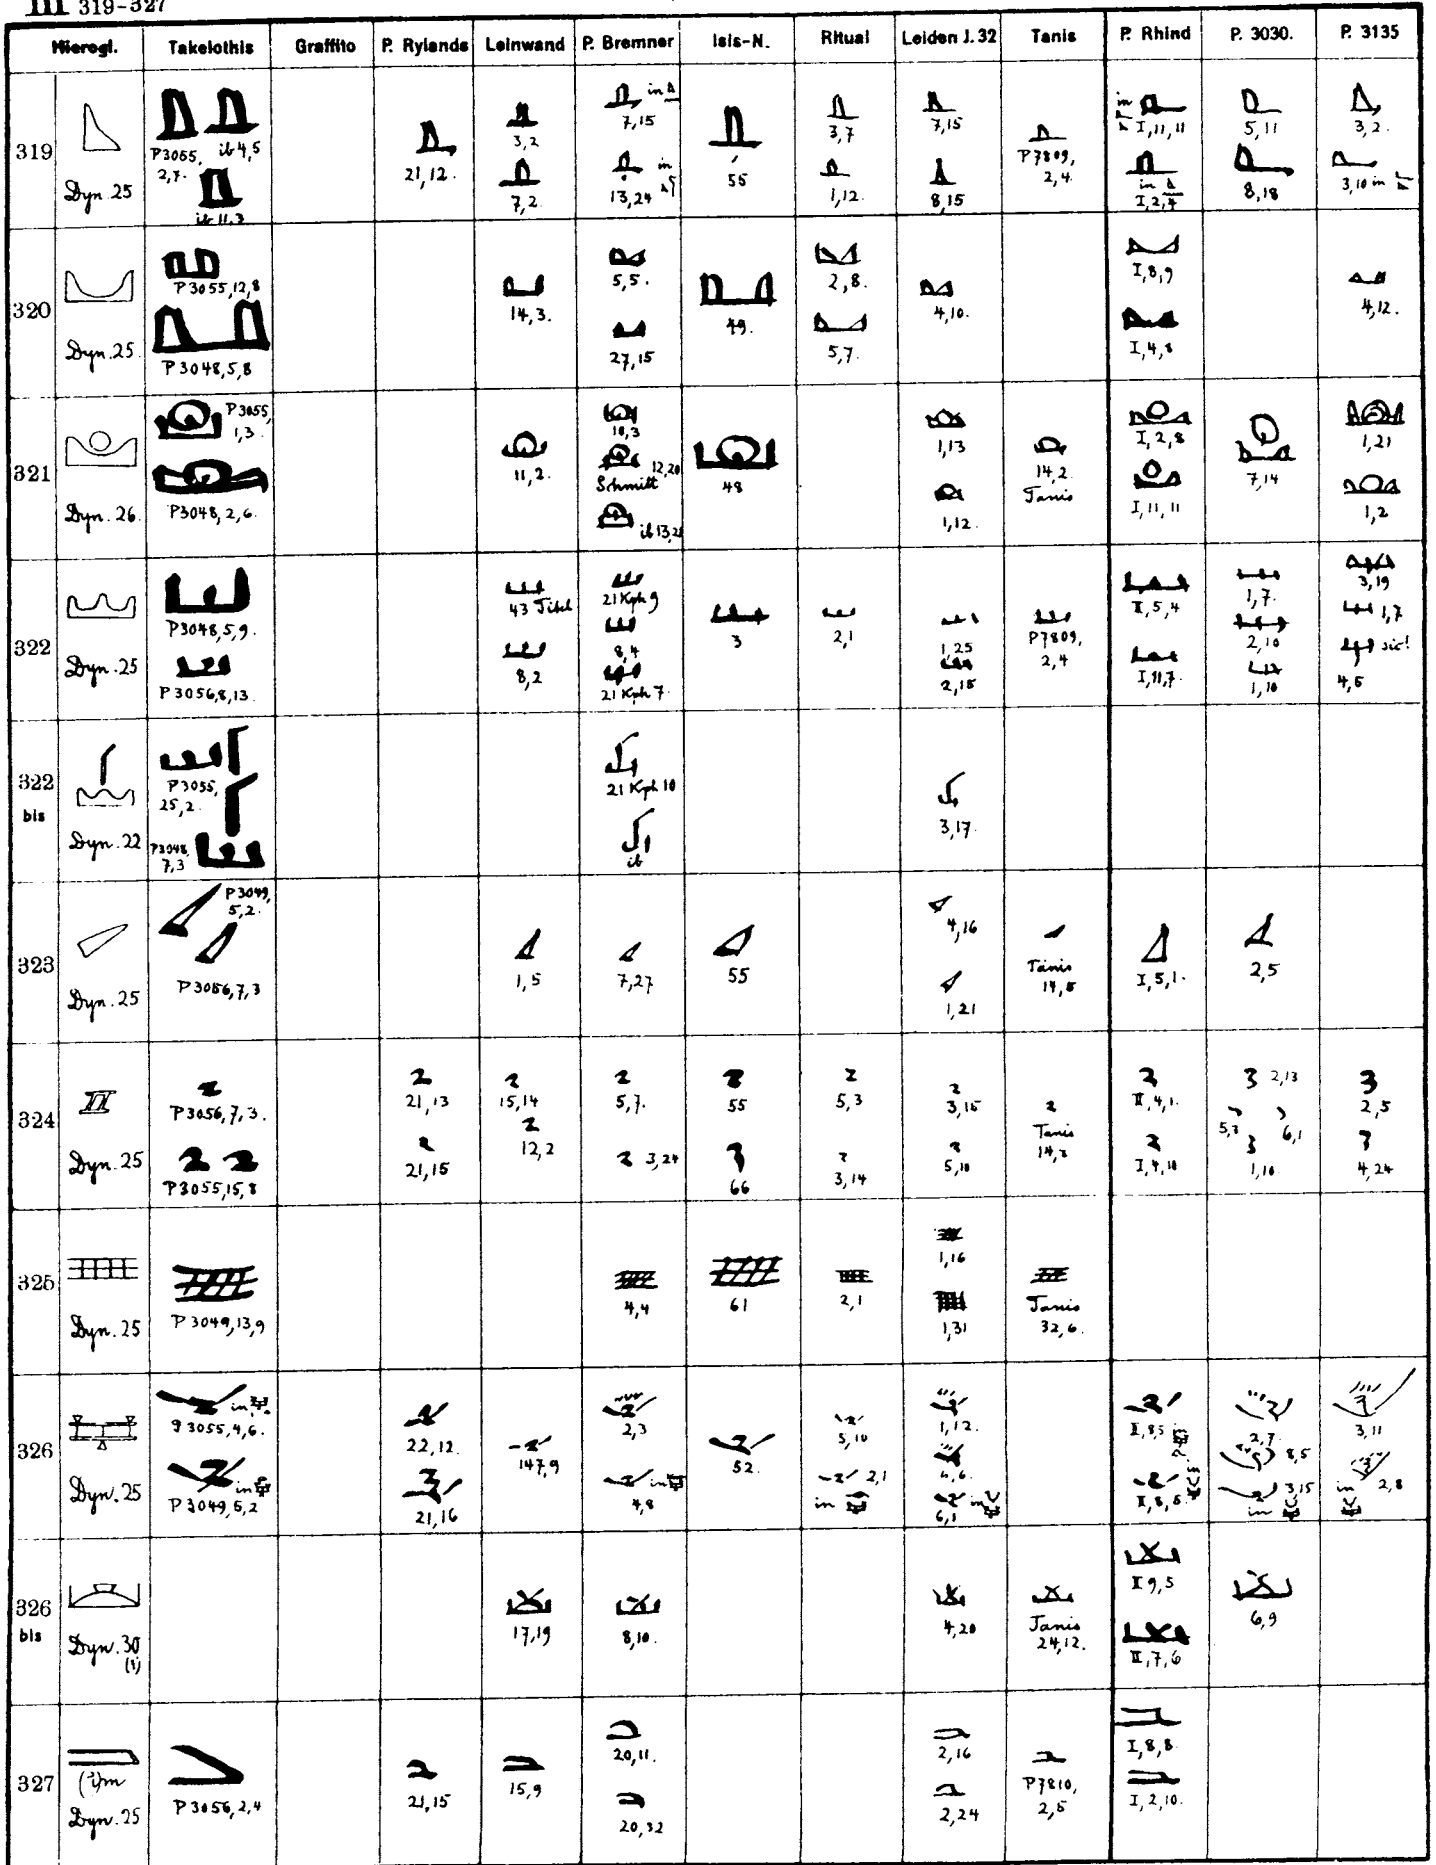 III 319-327
Hierogl. Takelothis Graffito P. Rylands Leinwand P. Bremner Isis-N. Ritual Leiden J. 32 Tanis P. Rhind P. 3030. P. 3135
319
Dyn. 25
P3055, 2,7.
ib 4,5
ib 11,3
21,12.
3,2
7,2.
in
7,15
13,24 in
55
3,7
1,12.
7,15
8,15
P7809,
2,4.
in
I,11,11
in
I,2,4
5,11
8,18
3,2.
3,10 in
320
Dyn. 25
P3055,12,8
P3048,5,8
14,3.
5,5.
27,15
49.
2,8.
5,7.
4,10.
I,8,9
I,4,8
4,12.
321
Dyn. 26
P3055,
1,3
P3048,2,6.
11,2.
10,3
12,20
Schmitt
48
1,13
1,12.
14,2.
Tanis
I,2,8
I,11,11
7,14
1,21
1,2
322
Dyn. 25
P3048,5,9.
P3056,8,13.
43 Titel
8,2
21 Kph 9
8,4
21 Kph 7.
3
2,1
1,25
2,15
P7809,
2,4
II,5,4
I,11,7.
1,7.
2,10
1,10
3,19
1,7
sic!
4,5
322
bis
Dyn. 22
P3055,
25,2.
P3048,
7,3
21 Kph 10
ib
3,17.
323
Dyn. 25
P3049,
5,2.
P3056,7,3
1,5
7,27
55
4,16
1,21
Tanis
14,5
I,5,1.
2,5
324
Dyn. 25
P3056,7,3.
P3055,15,8
21,13
21,15
15,14
12,2
5,7.
3,24
55
66
5,3
3,14
3,15
5,10
Tanis
II,4,1.
I,4,10
2,13
6,1
1,10
2,5
4,24
325
Dyn. 25
P3049,13,9
4,4
61
2,1
1,16
1,31
Tanis
32,6.
326
Dyn. 25
in
P3055,4,6.
in
P3049,5,2
22,12.
21,16
147,9
2,3
in
4,8
52.
5,10
2,1
in
1,12.
6,6.
in
6,1
II,8,5
II,8,5
2,7.
8,5
3,15
in
3,11
2,8
in
326
bis
Dyn. 30
17,19
8,10.
4,20
Tanis
24,12.
II 9,5
II,7,6
6,9
327
Dyn. 25
P3056,2,4
21,15
15,9
20,11.
20,32
2,16
2,24
P7810,
2,5
I,8,8.
I,2,10.